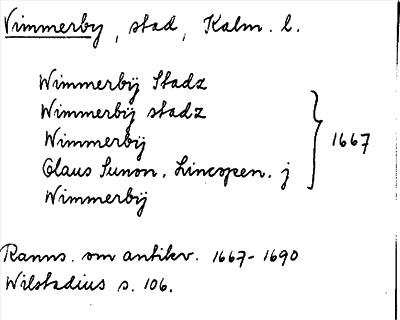 Vimmerby, stad, Kalm. l.
Wimmerbÿ Stadz
Wimmerbÿ stadz
Wimmerbÿ
Claus Sunon. Lincopen. j
Wimmerbÿ
} 1667
Ranns. om antikv. 1667-1690
Wilstadius s. 106.